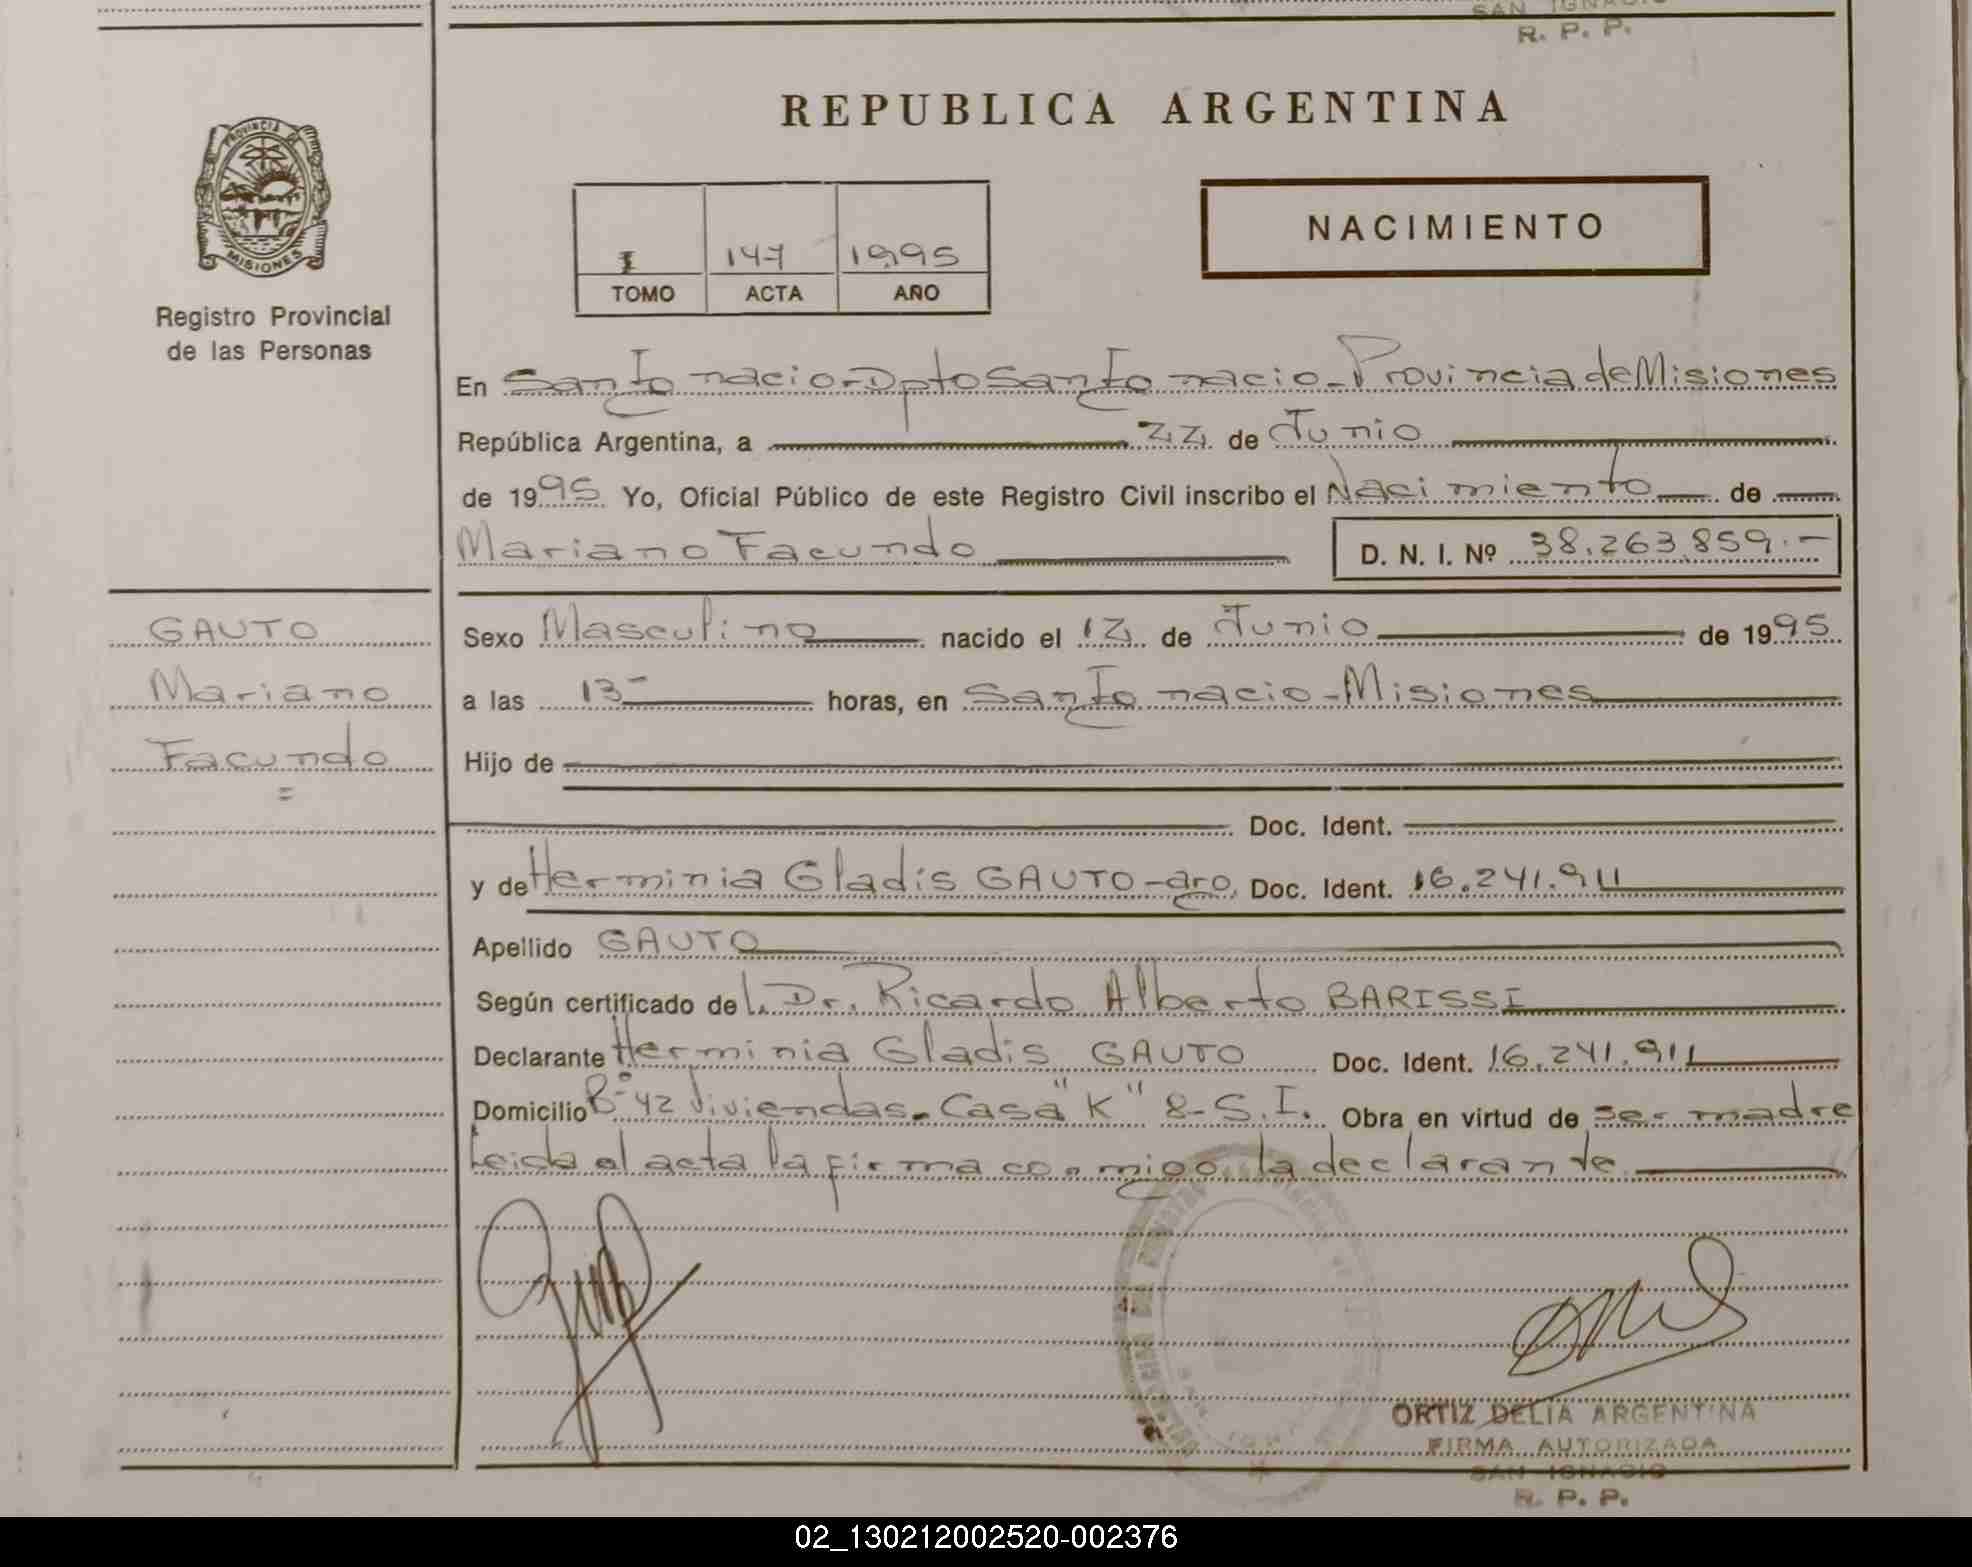 SAN IGNACIO
R. P. P.
REPUBLICA ARGENTINA
PROVINCIA DE
MISIONES
Registro Provincial
de las Personas
I 147 1995
TOMO ACTA AÑO
NACIMIENTO
En San Ignacio-Dpto San Ignacio-Provincia de Misiones
República Argentina, a 22 de Junio
de 1995 Yo, Oficial Público de este Registro Civil inscribo el Nacimiento de
Mariano Facundo D. N. I. Nº 38.263.859.-
GAUTO
Mariano
Facundo
=
Sexo Masculino nacido el 12 de Junio de 1995
a las 13- horas, en San Ignacio-Misiones
Hijo de
Doc. Ident.
y de Herminia Gladis GAUTO-arg. Doc. Ident. 16.241.911
Apellido GAUTO
Según certificado del Dr. Ricardo Alberto BARISSI
Declarante Herminia Gladis GAUTO Doc. Ident. 16.241.911
Domicilio Bº 42 Viviendas-Casa "K" 8-S.I. Obra en virtud de ser madre
Leida el acta la firma conmigo la declarante
ORTIZ DELIA ARGENTINA
FIRMA AUTORIZADA
SAN IGNACIO
R. P. P.
02_130212002520-002376